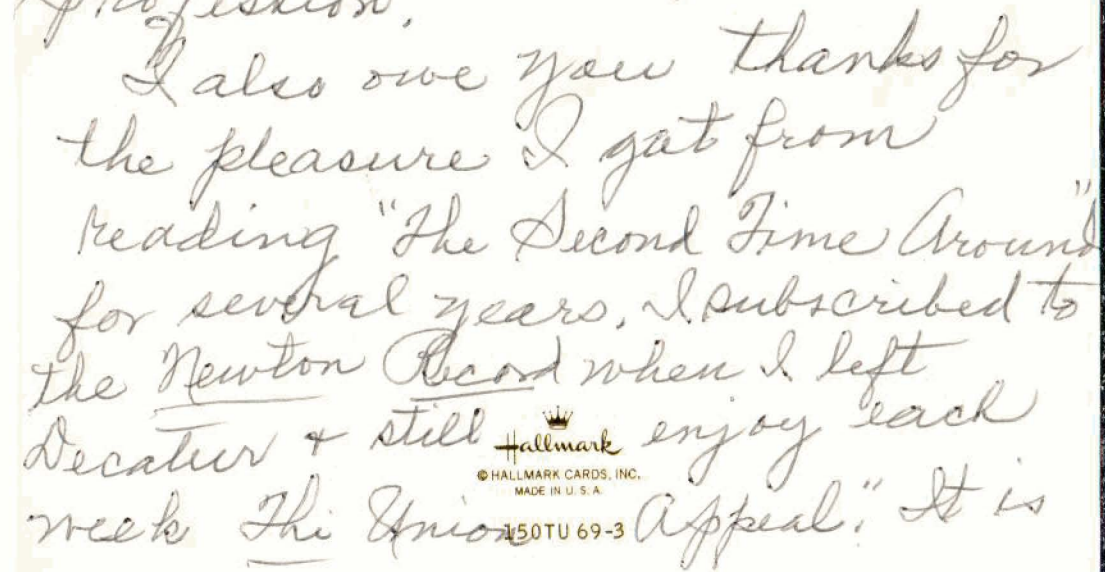 profession.
I also owe you thanks for
the pleasure I got from
reading "The Second Time Around"
for several years. I subscribed to
the Newton Record when I left
Decatur + still enjoy each
week The Union Appeal." It is
Hallmark
© HALLMARK CARDS, INC.
MADE IN U.S.A.
150TU 69-3